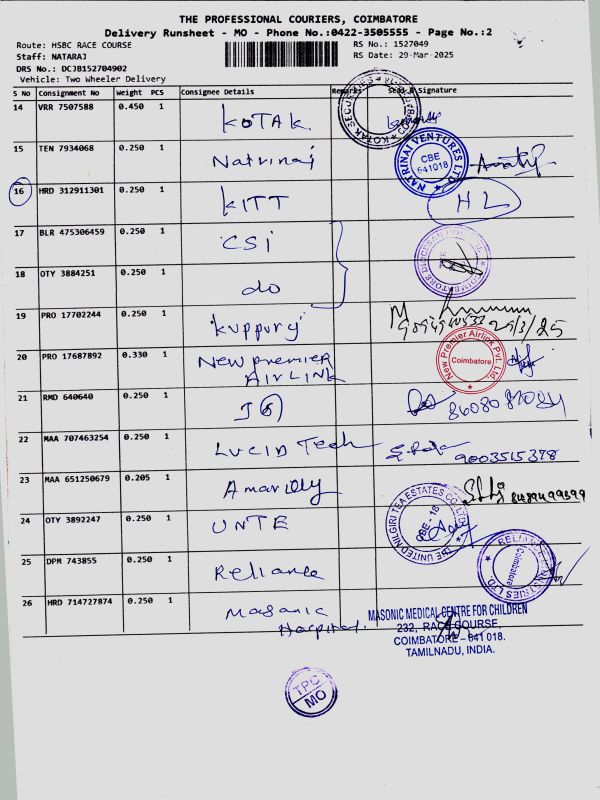 THE PROFESSIONAL COURIERS, COIMBATORE
Delivery Runsheet - MO - Phone No.:0422-3505555 - Page No.:2
Route: HSBC RACE COURSE
RS No.: 1527049
Staff: NATARAJ
RS Date: 29-Mar-2025
DRS No.: DCJB152704902
Vehicle: Two Wheeler Delivery
S No Consignment No Weight PCS Consignee Details Remarks Seal & Signature
14 VRR 7507588 0.450 1 KOTAK
15 TEN 7934068 0.250 1 Natrinai
NATRINAI VENTURES LTD CBE 641018
16 HRD 312911301 0.250 1 KITT HL
17 BLR 475306459 0.250 1 CSI
COIMBATORE DIOCESAN COUNCIL
18 OTY 3884251 0.250 1 do
19 PRO 17702244 0.250 1 29/3/25
20 PRO 17687892 0.330 1 New premier
AIRLINK
New Premier Airlink Pvt. Ltd Coimbatore
21 RMD 640640 0.250 1
22 MAA 707463254 0.250 1 LUCID Tech 9003515378
23 MAA 651250679 0.205 1 8489499599
24 OTY 3892247 0.250 1 UNTE
THE UNITED NILGIRI TEA ESTATES CO. LTD CBE - 18
25 DPM 743855 0.250 1 Reliance
RELIANCE INDUSTRIES LTD Coimbatore
26 HRD 714727874 0.250 1 Masonic
Hospital.
MASONIC MEDICAL CENTRE FOR CHILDREN
232, RACE COURSE,
COIMBATORE - 641 018.
TAMILNADU, INDIA.
TPC
MO